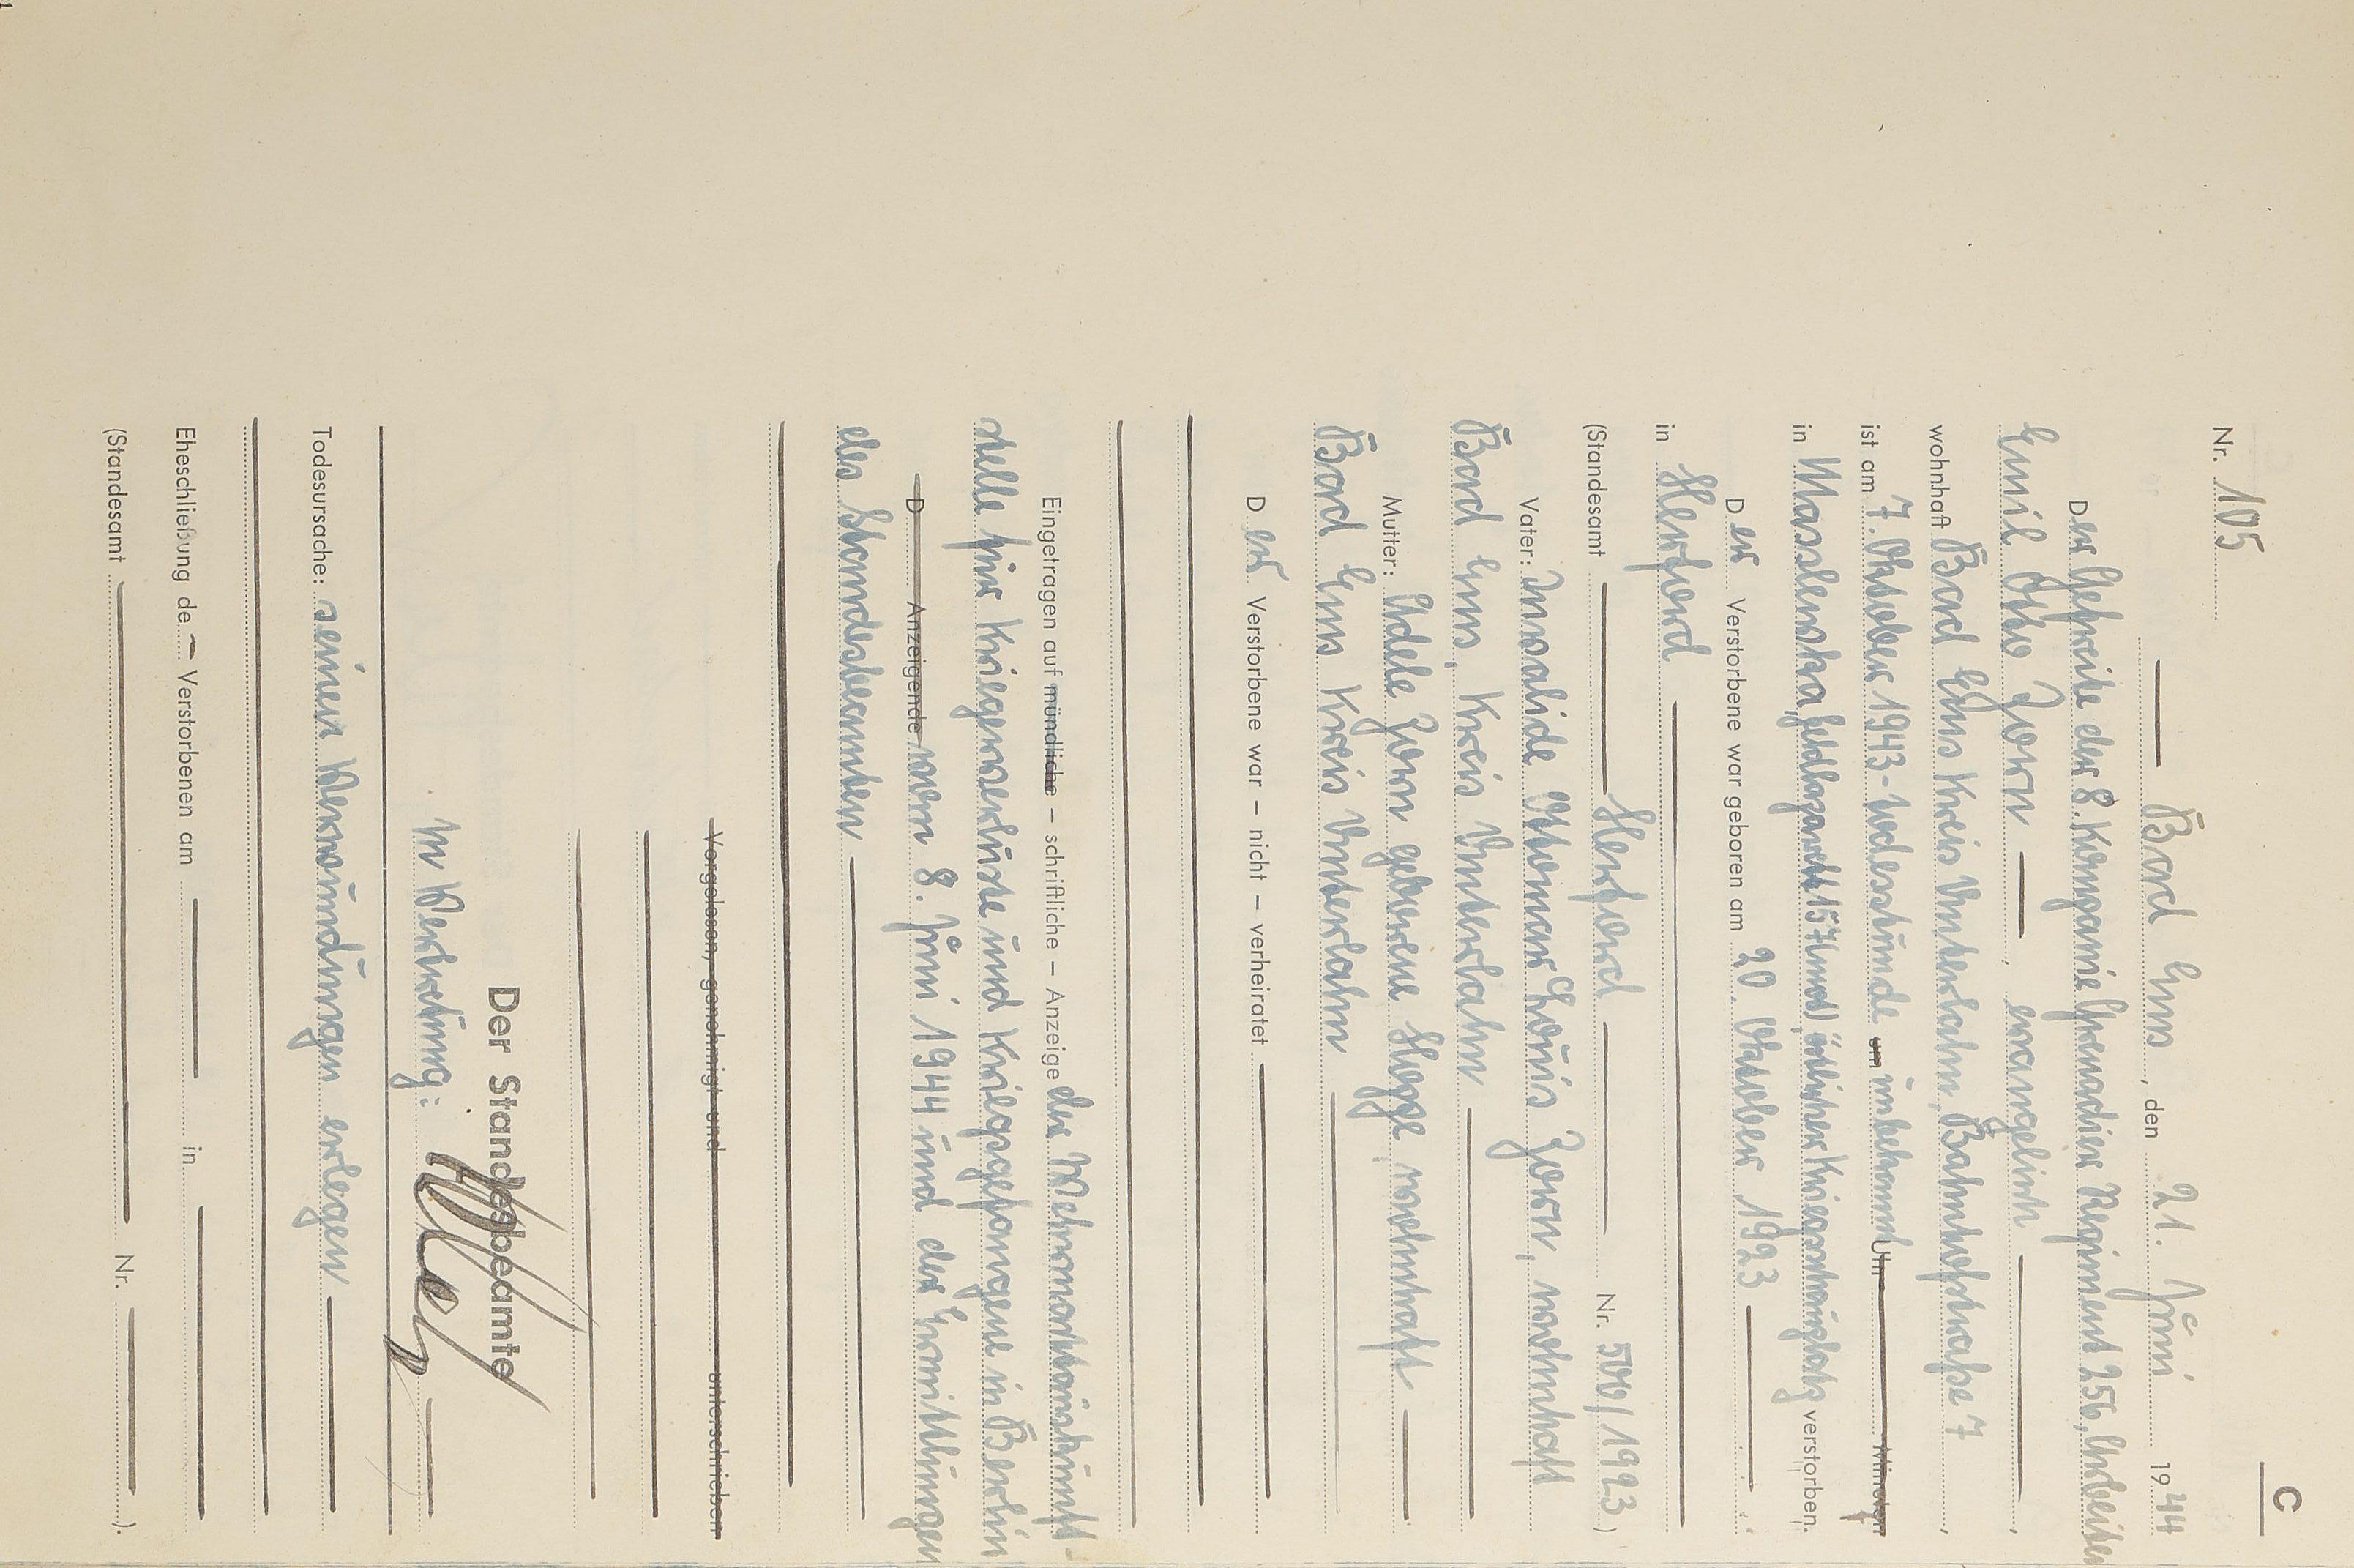 C
Nr. 105
Bad Ems, den 21. Juni 1944
Der Gefreite der 8. Kompanie Grenadier Regiment 256, Arbeiter
Emil Otto Zorn, evangelisch,
wohnhaft Bad Ems Kreis Unterlahn, Bahnhofstraße 7,
ist am 7. Oktober 1943 - Todesstunde um unbekannt Uhr Minuten
in Maslenska, Feldlazarett, östlicher Kriegsschauplatz verstorben.
Der Verstorbene war geboren am 20. Oktober 1923
in Herford
(Standesamt Herford Nr. 500/1923)
Vater: Invalide Ottomar Louis Zorn, wohnhaft
Bad Ems, Kreis Unterlahn
Mutter: Adele Zorn geborene Hoppe, wohnhaft
Bad Ems Kreis Unterlahn
Der Verstorbene war – nicht – verheiratet
Eingetragen auf mündliche – schriftliche – Anzeige der Wehrmachtauskunft-
stelle für Kriegerverluste und Kriegsgefangene in Berlin
D Anzeigende vom 8. Juni 1944 und der Ermittlungen
des Standesbeamten
Vorgelesen, genehmigt und unterschrieben
Der Standesbeamte
In Vertretung:
Todesursache: seinen Verwundungen erlegen
Eheschließung de Verstorbenen am in
(Standesamt Nr. ).